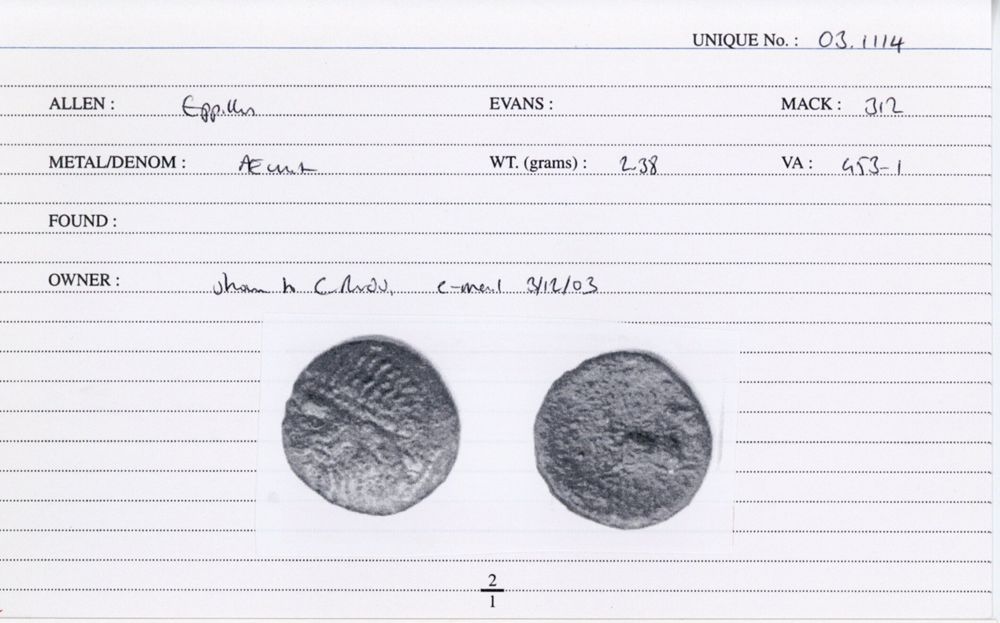 UNIQUE No. : 03.1114
ALLEN : Eppillus EVANS : MACK : 312
METAL/DENOM : Æ unit WT. (grams) : 2.38 VA : 453-1
FOUND :
OWNER : shown to C. e-mail 3/12/03
2
1